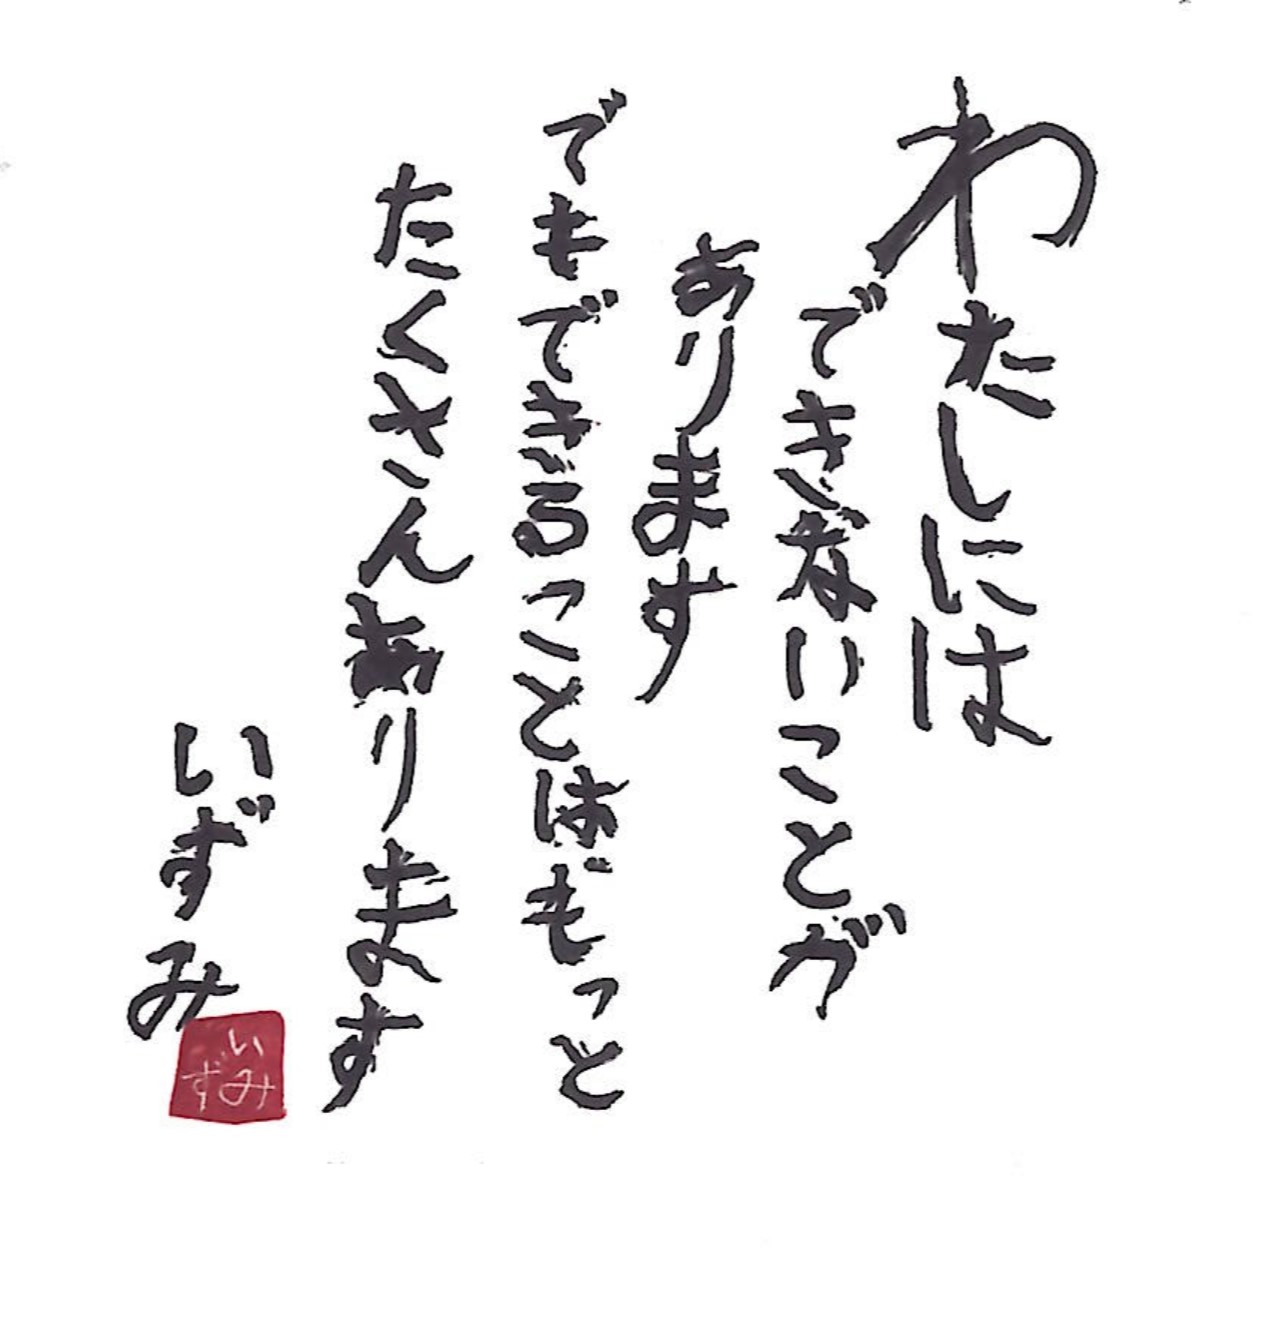 わたしには
できないことが
あります
でもできることはもっと
たくさんあります
いずみ
いずみ